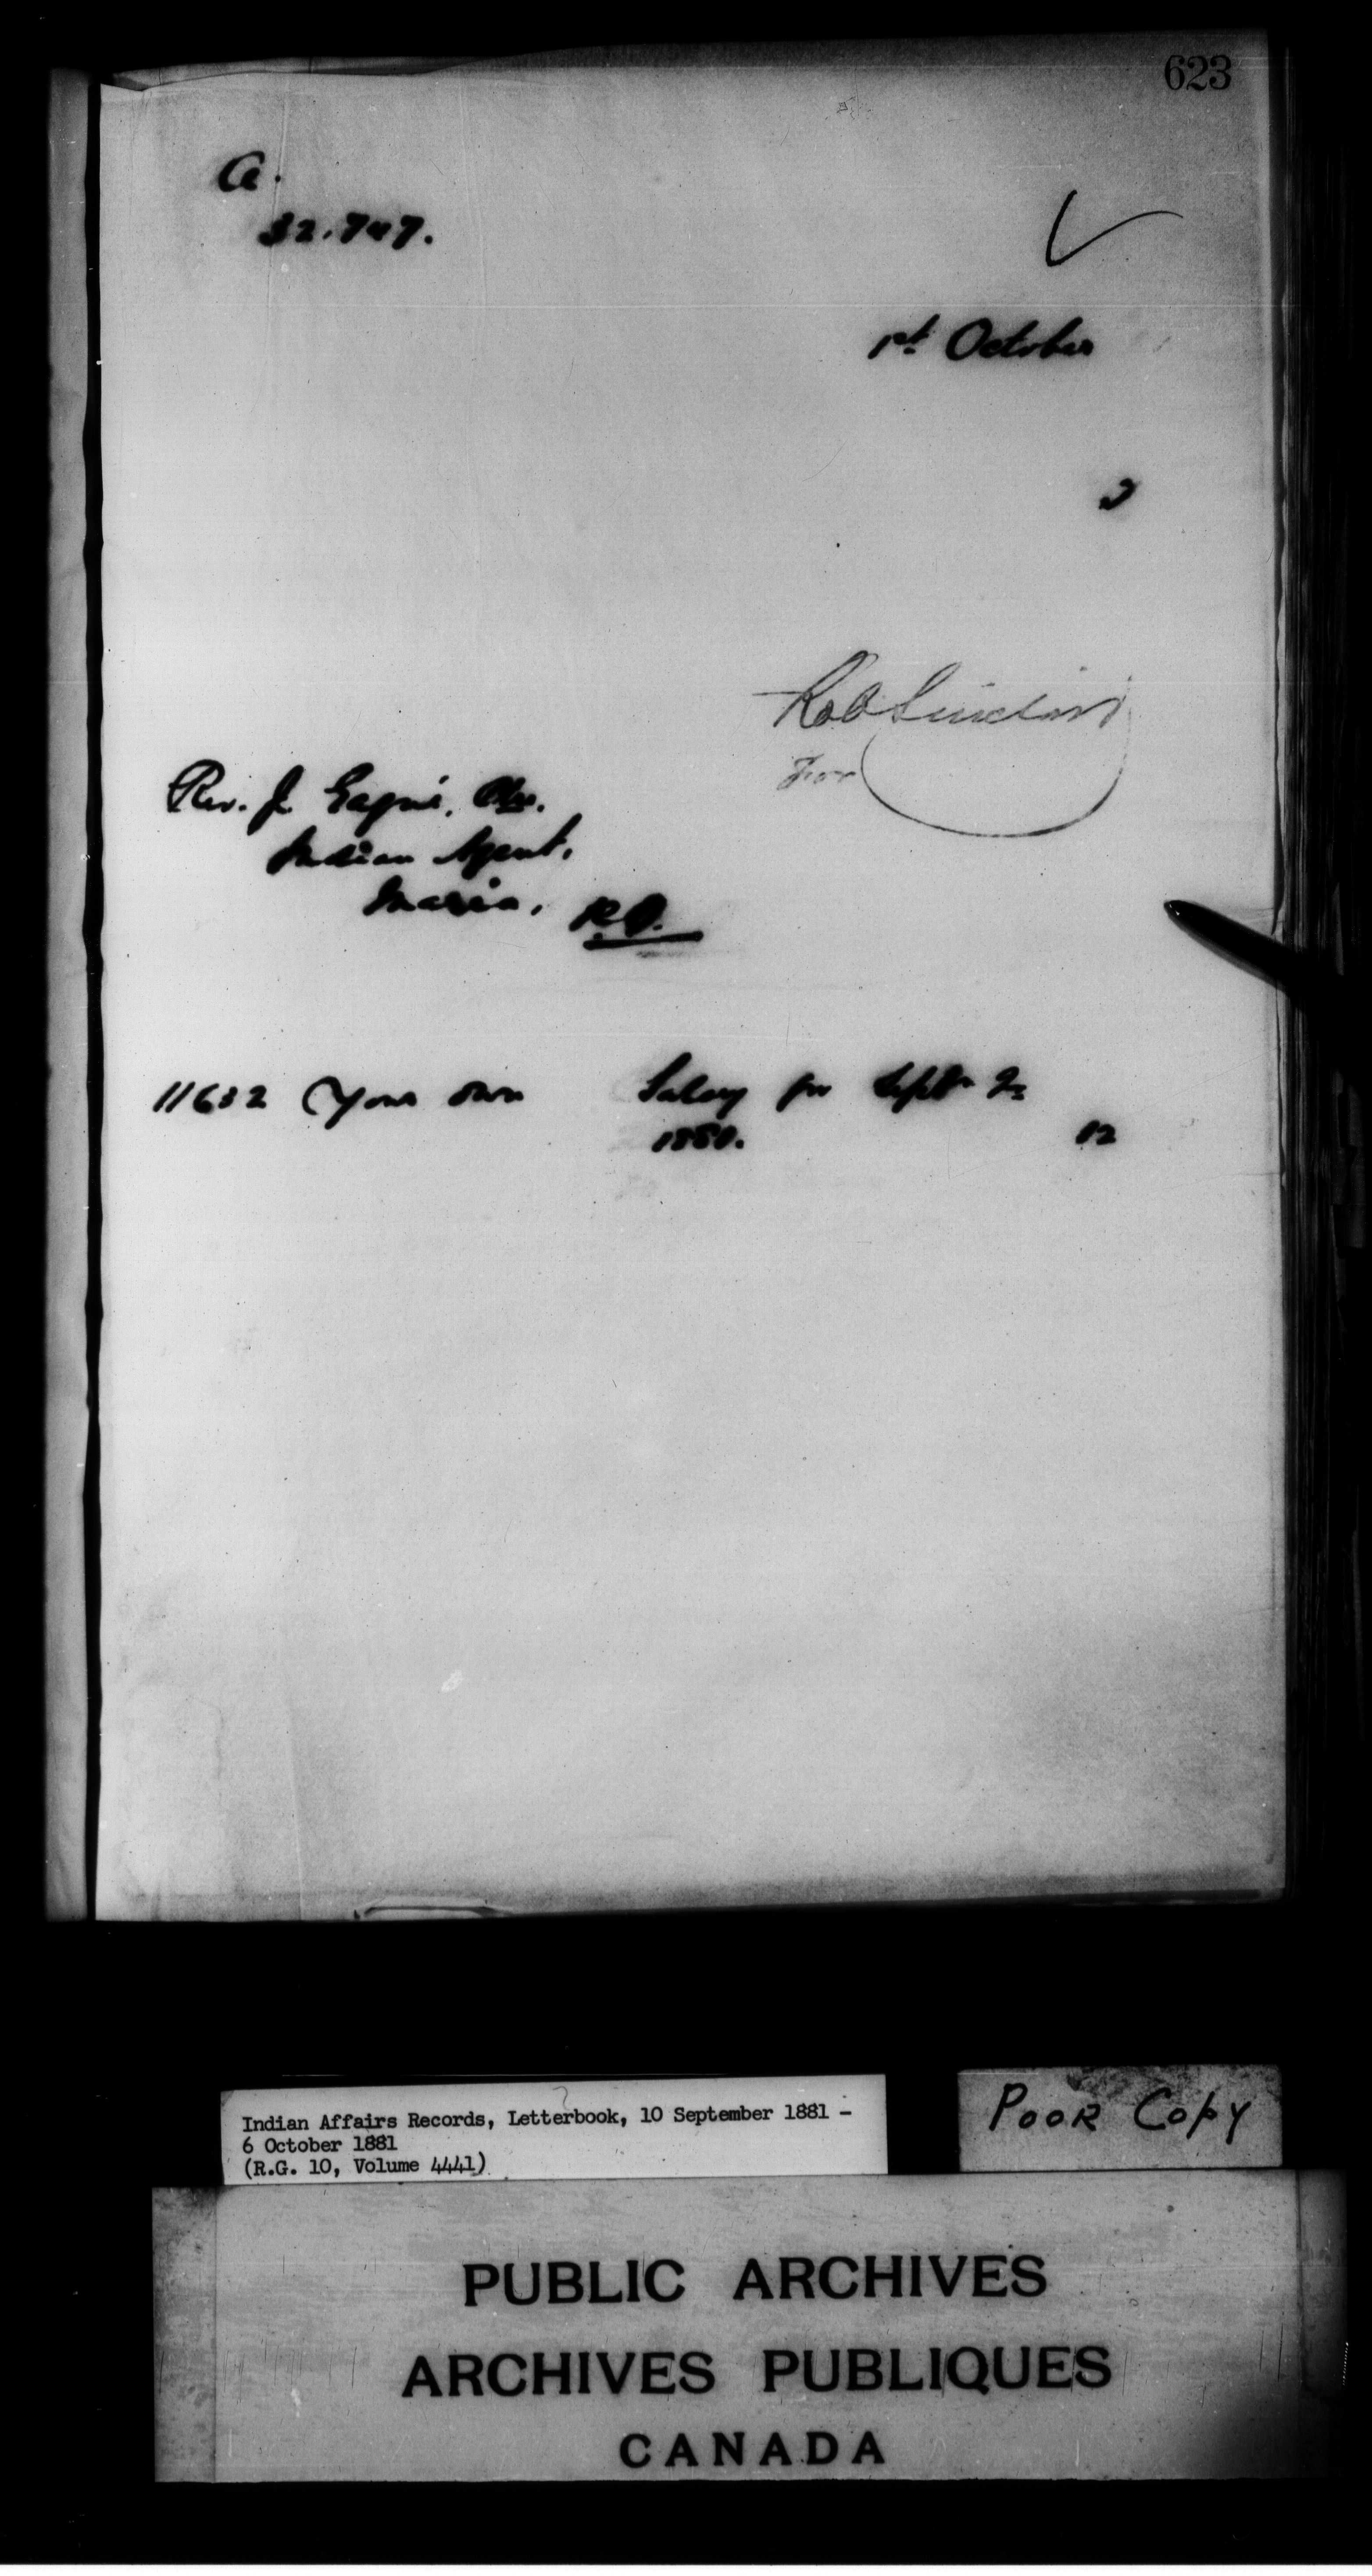 623
A.
32.747.
1st October
2
Rob Sinclair
For
Rev. J. Gagné,
Indian Agent,
Maria, P.Q.
11632 Your own Salary for Septr Qr
1880. 12
Indian Affairs Records, Letterbook, 10 September 1881 -
6 October 1881
(R.G. 10, Volume 4441)
POOR COPY
PUBLIC ARCHIVES
ARCHIVES PUBLIQUES
CANADA